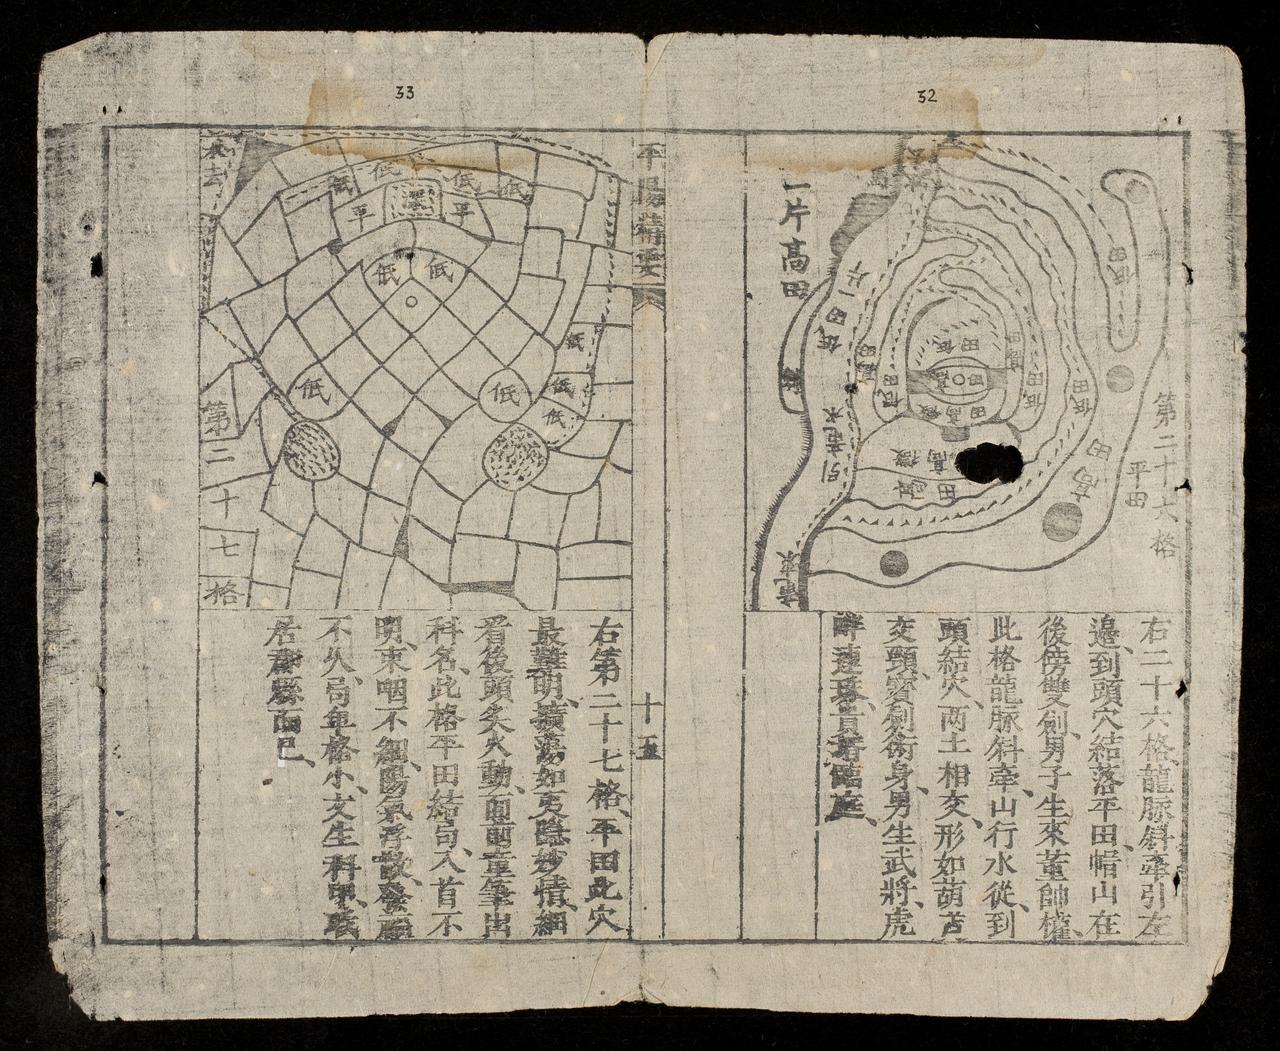 33
32
一片高田
第二十六格
平田
高田
低田
低田
低田一片
引龍水
右二十六格龍脉斜牽引左
邉、到頭穴結落平田帽山在
後傍雙劍、男子生來董帥權、
此格龍脉斜牽山行水從、到
頭結穴、两土相交、形如葫芦
交頸、寳劍衛身、男生武將、虎
畔連珠、貴者臨庭、
平陽精要
十五
水去
低
低
低
低
平
平
低
低
低
低
低
低
低
第二十七格
右第二十七格、平田此穴
最難明、擴蕩如更隐妙情、細
看後頭矢火動、面前童筆出
科名、此格平田结局、入首不
明、束咽不細、陽氣浮散、發
不久、局年格小、女生科甲、職
居郡縣而已、